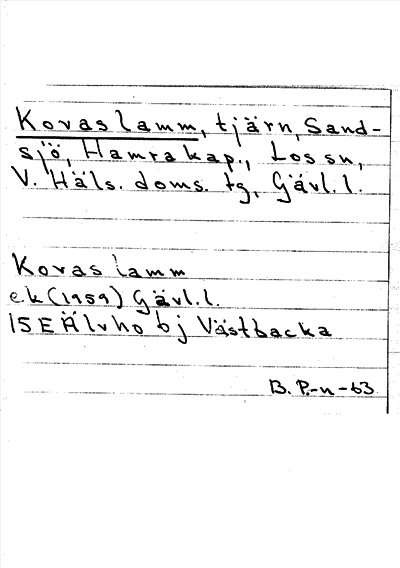 Kovaslamm, tjärn, Sand-
sjö, Hamra kap., Los sn,
V. Häls. doms. tg, Gävl. l.
Kovaslamm
ek (1959) Gävl. l.
15E Älvho 6j Västbacka
B. P-n -63